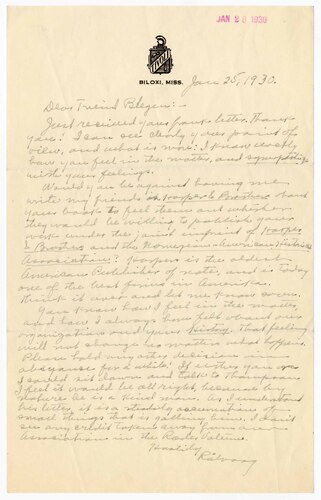 JAN 28 1930
TIVOLI
BILOXI, MISS.
Jan 25, 1930.
Dear Friend Blegen:-
Just received your frank letter. Thank
you! I can see clearly your point of
view, and what is more: I know exactly
how you feel in the matter, and sympathize
with your feelings.
Would you be against having me
write my friends in Harper & Brothers about
your book to feel them out whether
they would be willing to publish your
work under the joint imprint of Harper
& Brothers and the Norwegian-American Historical
Association? Harper is the oldest
American Publisher of note, and is today
one of the best firms in America.
Think it over and let me know soon.
You know how I feel in the matter
and how I always have felt about our
organization and your history. That feeling
will not change no matter what happens.
Please hold any other decision in
abeyance for a while! If it was you
I could sit down and talk to Thompson
I feel it would be all right, because by
nature he is a kind man. As I understand
his letter, it is a steady accumulation of
small things that is galling him. I can't
see any credit taken away from our
Association in the Rolvaag Volume.
Hastily
Rölvaag